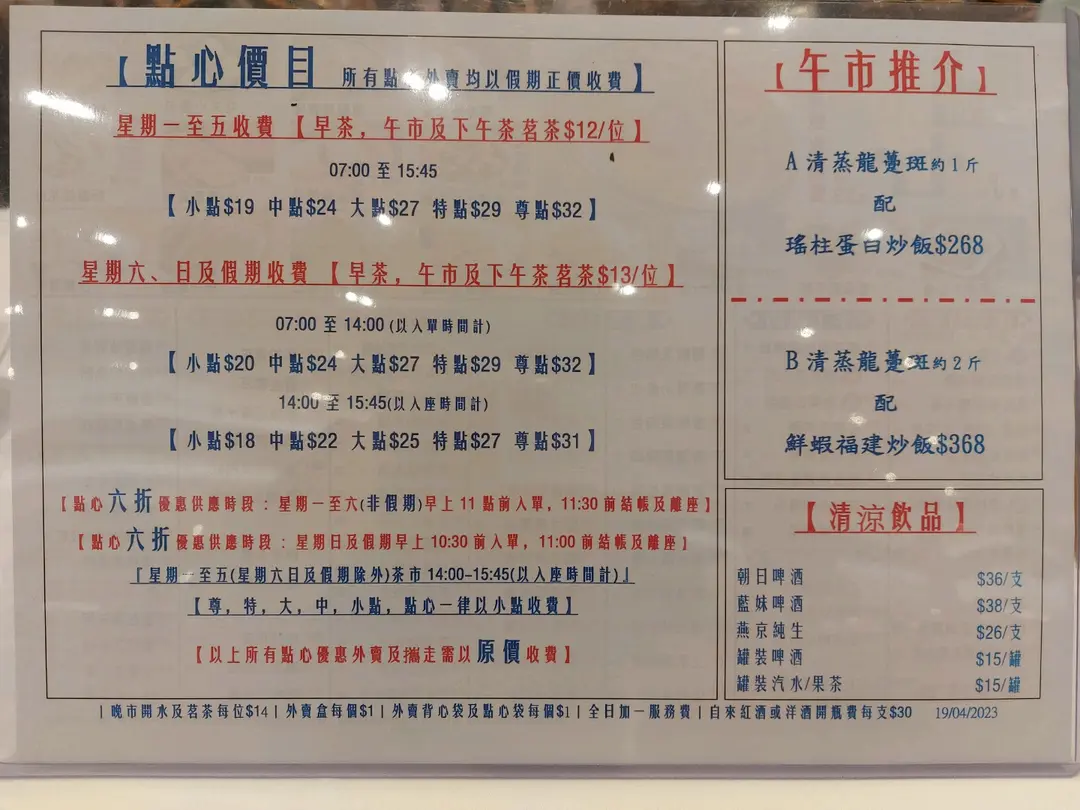 【點心價目 所有點心外賣均以假期正價收費】
星期一至五收費【早茶，午市及下午茶茗茶$12/位】
07:00 至 15:45
【小點$19 中點$24 大點$27 特點$29 尊點$32】
星期六、日及假期收費【早茶，午市及下午茶茗茶$13/位】
07:00 至 14:00 (以入單時間計)
【小點$20 中點$24 大點$27 特點$29 尊點$32】
14:00 至 15:45(以入座時間計)
【小點$18 中點$22 大點$25 特點$27 尊點$31】
【點心六折優惠供應時段：星期一至六(非假期)早上 11 點前入單，11:30 前結帳及離座】
【點心六折優惠供應時段：星期日及假期早上 10:30 前入單，11:00 前結帳及離座】
『星期一至五(星期六日及假期除外)茶市 14:00-15:45(以入座時間計)』
【尊，特，大，中，小點，點心一律以小點收費】
【以上所有點心優惠外賣及攜走需以原價收費】
【午市推介】
A 清蒸龍躉斑約 1 斤
配
瑤柱蛋白炒飯$268
B 清蒸龍躉斑約 2 斤
配
鮮蝦福建炒飯$368
【清涼飲品】
朝日啤酒 $36/支
藍妹啤酒 $38/支
燕京純生 $26/支
罐裝啤酒 $15/罐
罐裝汽水/果茶 $15/罐
| 晚市開水及茗茶每位$14 | 外賣盒每個$1 | 外賣背心袋及點心袋每個$1 | 全日加一服務費 | 自來紅酒或洋酒開瓶費每支$30 19/04/2023